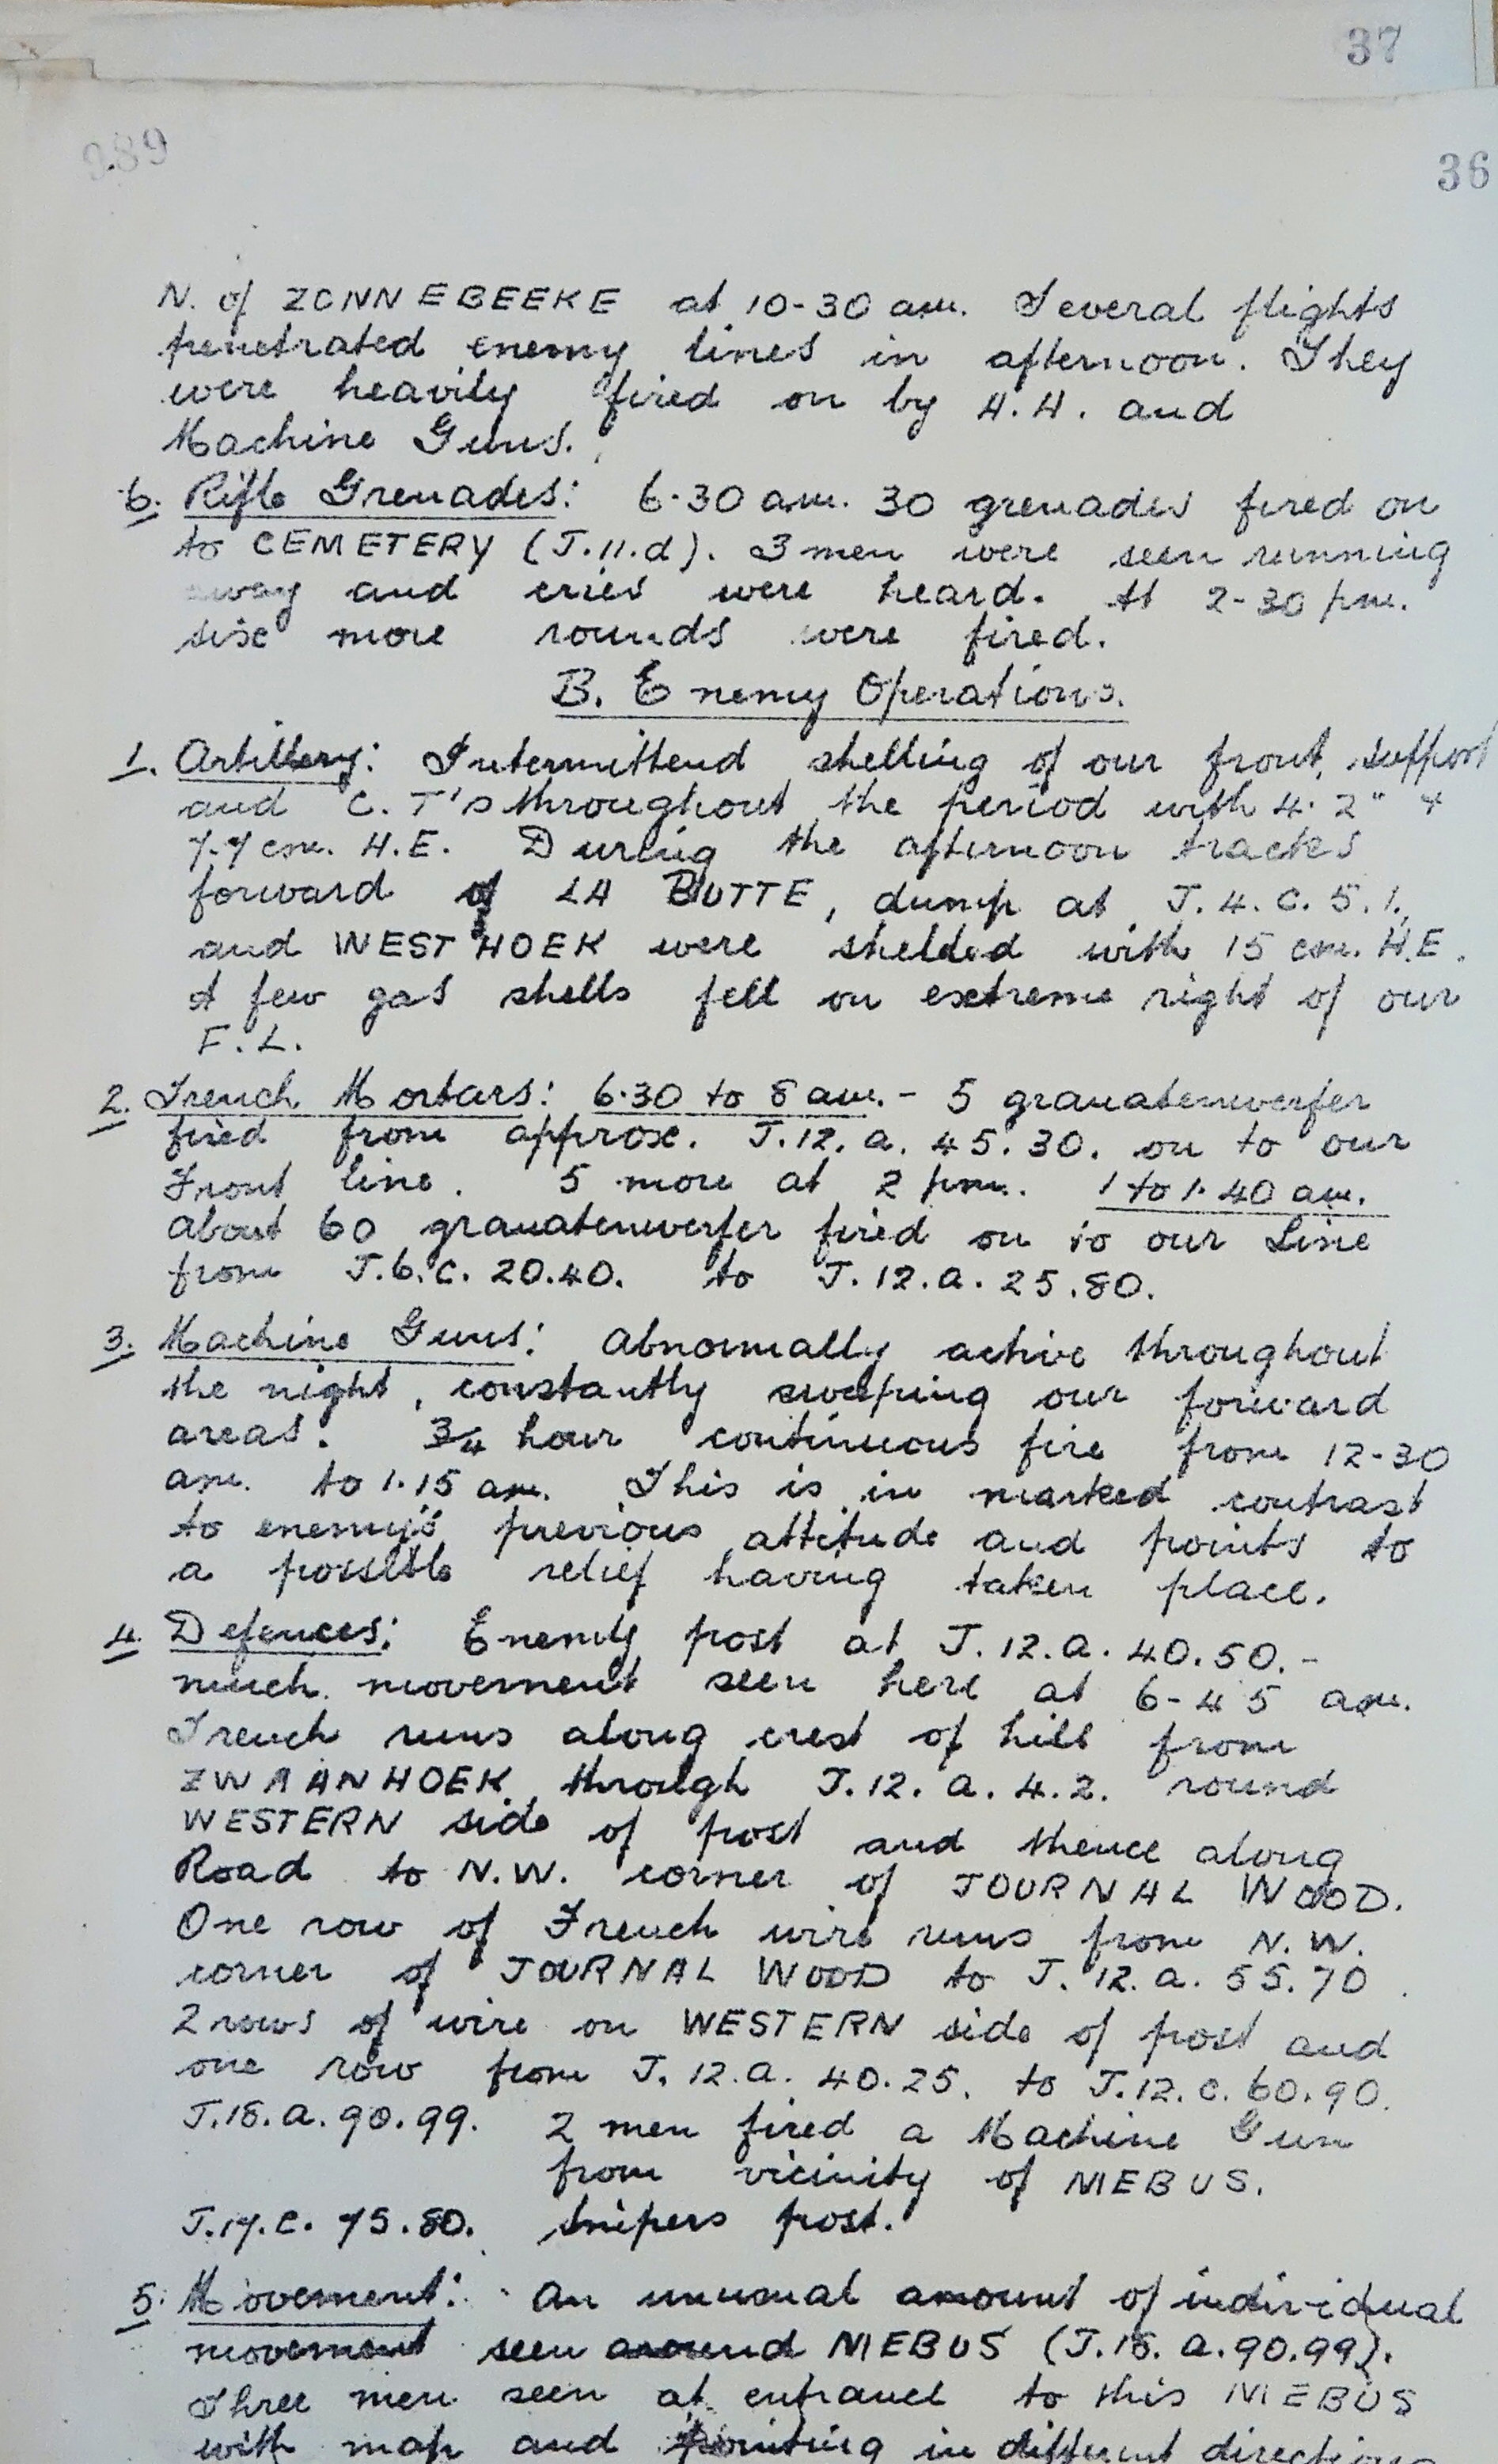 37
989
36
N. of ZONNEBEEKE at 10-30 am. Several flights
penetrated enemy lines in afternoon. They
were heavily fired on by A.A. and
Machine Guns.
6. Rifle Grenades: 6.30 am. 30 grenades fired on
to CEMETERY (J.11.d). 3 men were seen running
away and cries were heard. At 2-30 pm.
six more rounds were fired.
B. Enemy Operations.
1. Artillery: Intermittend shelling of our front, support
and C.T's throughout the period with 4.2" &
7.7 cm. H.E. During the afternoon tracks
forward of LA BUTTE, dump at J.4.c.5.1.,
and WESTHOEK were shelled with 15 cm. H.E.
A few gas shells fell on extreme right of our
F.L.
2. Trench Mortars: 6.30 to 8 am. - 5 granatenwerfer
fired from approx. J.12.a.45.30. on to our
Front line. 5 more at 2 pm. 1 to 1.40 am.
about 60 granatenwerfer fired on to our Line
from J.6.c.20.40. to J.12.a.25.80.
3. Machine Guns: Abnormally active throughout
the night, constantly sweeping our forward
areas. 3/4 hour continuous fire from 12-30
am. to 1.15 am. This is in marked contrast
to enemy's previous attitude and points to
a possible relief having taken place.
4. Defences: Enemy post at J.12.a.40.50. -
much movement seen here at 6-45 am.
Trench runs along crest of hill from
ZWAANHOEK through J.12.a.4.2. round
WESTERN side of post and thence along
Road to N.W. corner of JOURNAL WOOD.
One row of French wire runs from N.W.
corner of JOURNAL WOOD to J.12.a.55.70.
2 rows of wire on WESTERN side of post and
one row from J.12.a.40.25. to J.12.c.60.90.
J.18.a.90.99. 2 men fired a Machine Gun
from vicinity of NIEBUS.
J.17.c.75.80. Snipers post.
5. Movement: An unusual amount of individual
movement seen around NIEBUS (J.18.a.90.99).
Three men seen at entrance to this NIEBUS
with map and pointing in different directions